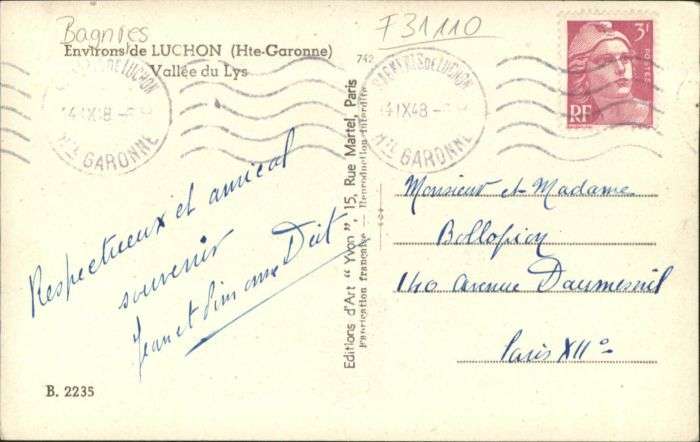 Bagnères
F31110
Environs de LUCHON (Hte-Garonne)
Vallée du Lys
742
BAGNERES DE LUCHON
14 IX 48
Hte GARONNE
BAGNERES DE LUCHON
14 IX 48
Hte GARONNE
3F
POSTES
RF
Respectueux et amical
souvenir
Jean et
Editions d'Art "Yvon", 15, Rue Martel, Paris
Fabrication française — Reproduction interdite
Monsieur et Madame
140 avenue Daumesnil
Paris XIIº
B. 2235